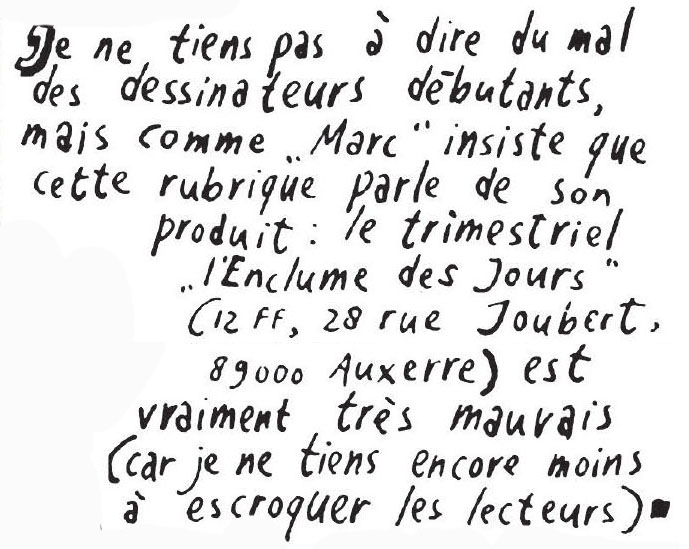 Je ne tiens pas à dire du mal
des dessinateurs débutants,
mais comme „Marc“ insiste que
cette rubrique parle de son
produit : le trimestriel
„l'Enclume des Jours“
(12 FF, 28 rue Joubert,
89000 Auxerre) est
vraiment très mauvais
(car je ne tiens encore moins
à escroquer les lecteurs) ■